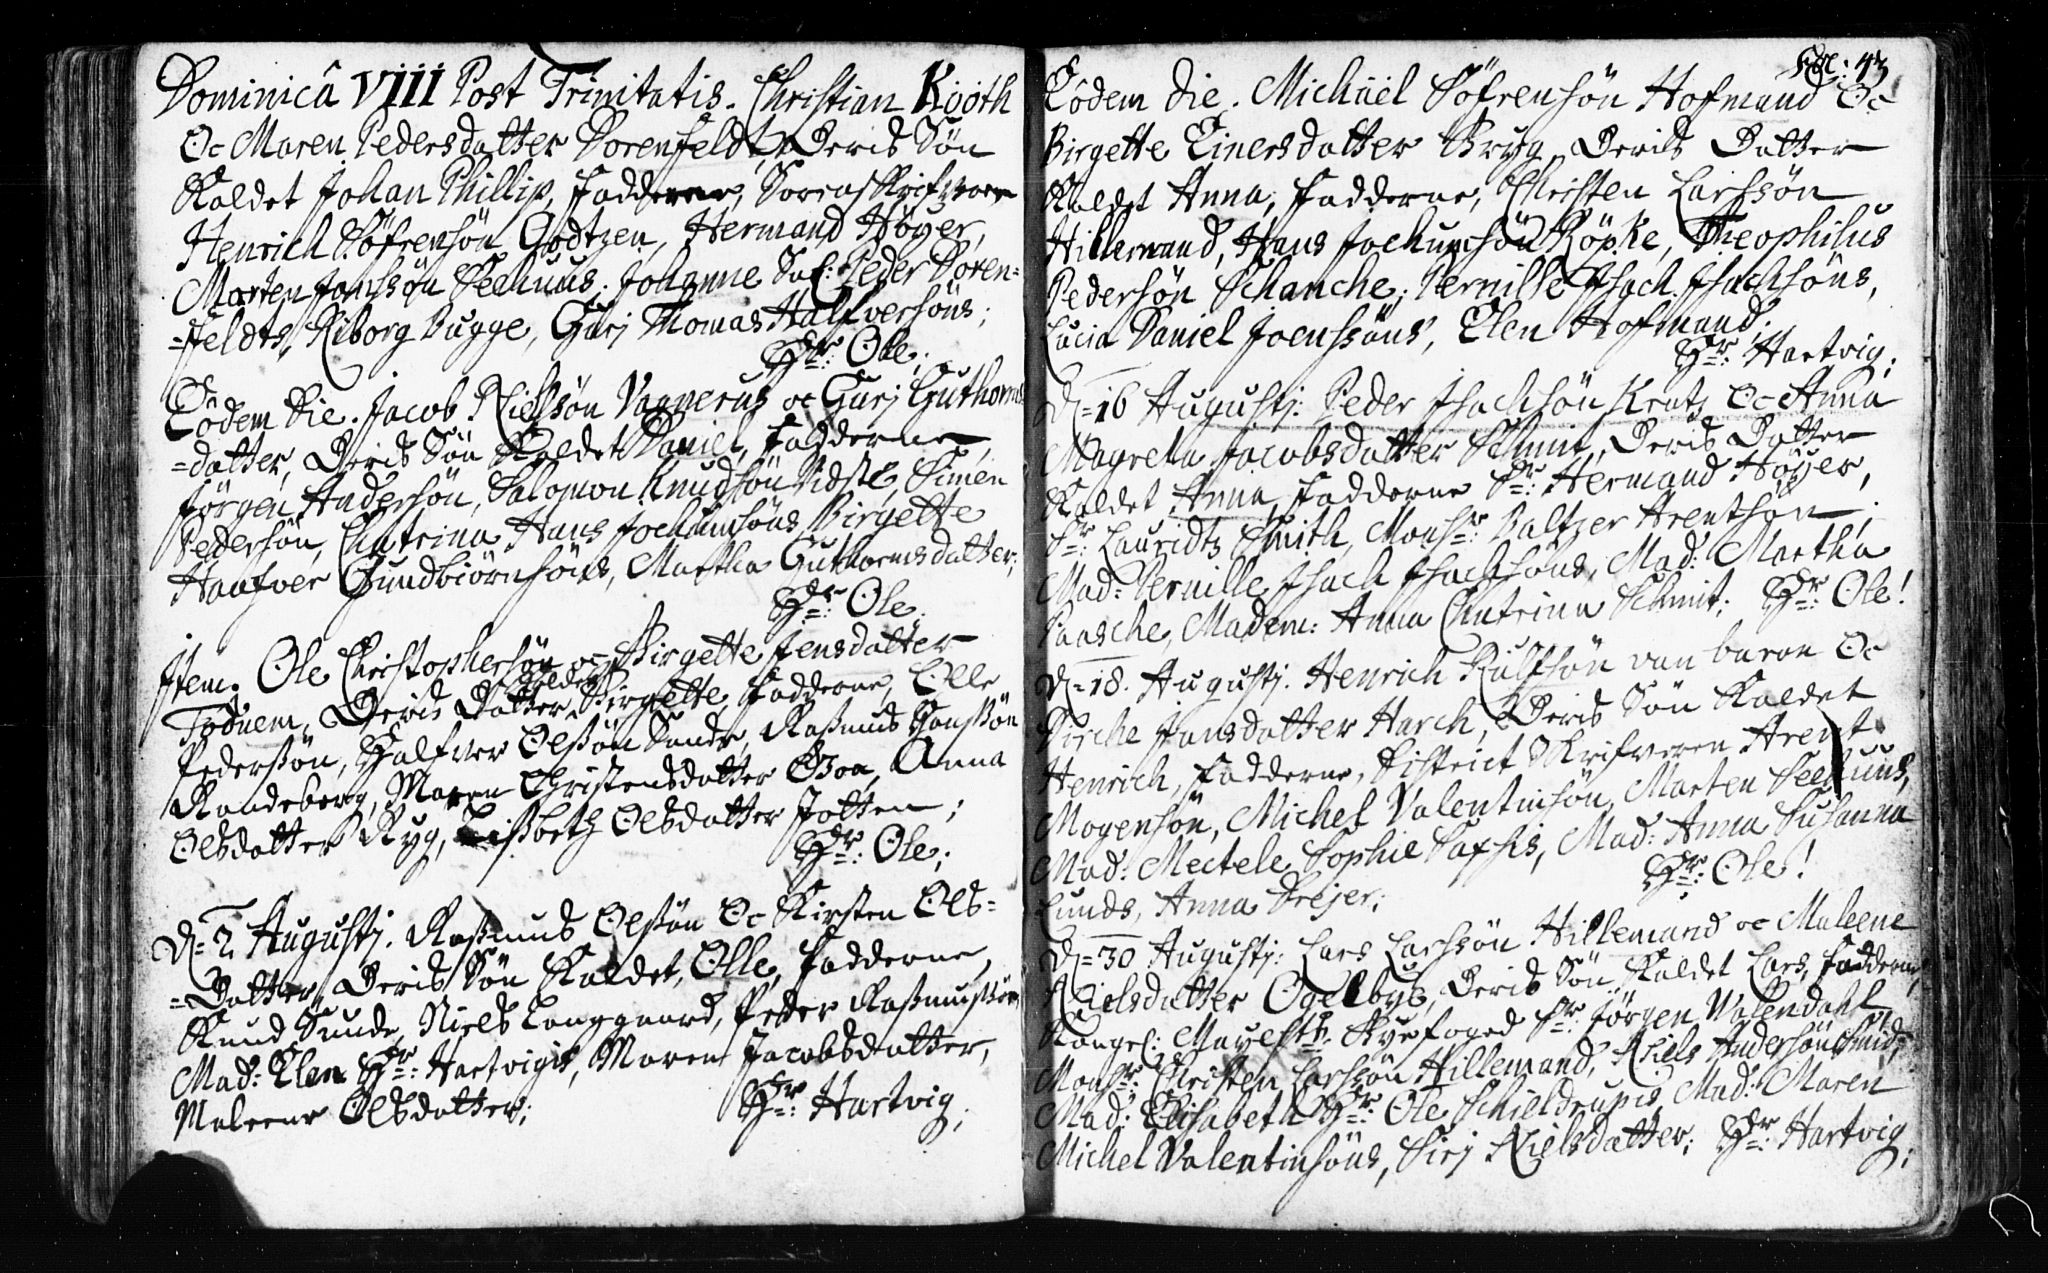 Dominicâ VIII Post Trinitatis. Christian Kööth
Oc Maren Pedersdatter Dorenfeldt, Deris Søn
Kaldet Johan Phillip, Fadderne, Sorenskrifveren
Henrich Söfrensön Godtzen, Hermand Höyer,
Morten Jonssön Seehuus, Johanne Sal: Peder Doren=
=feldts, Kiborg Bugge, Gurj Thomas Halfversöns;
Hr: Ole;
Eôdem Die. Jacob Nielsön Vagnerus oc Gurj Guthorms
=datter, Deris Sön Kaldet Daniel, Fadderne,
Jörgen Andersön, Salomon Knudsön Vidste, Simen
Pedersön, Chatrina Hans Jochumsöns, Birgette
Haafver Gundbiörnsöns, Martha Guthormsdatter;
Hr: Ole;
Item. Ole Christophersön oc Birgette Jensdatter
Kaldet
Todnem, Deris Datter Birgette, Fadderne, Olle
Pederssön, Halfver Olssön Sande, Rasmus Hanssön
Randeberg, Maren Christensdatter Boa, Anna
Olsdatter Ryg, Lissbeth Olsdatter Jotten;
Hr: Ole;
D= 2 Augustj. Rasmus Olssön Oc Kirsten Ols=
=Datter, Deris Sön Kaldet, Olle, Fadderne,
Knud Sunde, Niels Langgaard, Peder Rasmussön,
Mad: Elen Hr: Hartvigs, Maren Jacobsdatter,
Maleene Olsdatter;
Hr: Hartvig;
Fol: 43
Eôdem die. Michäel Söfrensön Hofmand Oc
Birgette Einersdatter Bryg, Deris Datter
Kaldet Anna, Fadderne, Christen Larssön
Hillemand, Hans Jochumsön Röpke, Theophilus
Pedersön Schanche, Pernille Isach Isachsöns,
Lucia Daniel Joenssöns, Elen Hofmand.
Hr: Hartvig;
D= 16 Augustj: Peder Isachsön Kratz Oc Anna
Magreta Jacobsdatter Schmit, Deris Datter
Kaldet Anna, Fadderne Sr: Hermand Höyer,
Sr: Lauridtz Smith, Monsr: Baltzer Arentsön;
Mad: Pernille Isach Isachsöns, Mad: Martha
Paasche, Madem: Anna Chatrina Schmit; Hr: Ole!
D= 18. Augustj. Henrich Rulfsön van buron Oc
Dirche Jansdatter Harch, Deris Sön Kaldet
Henrich, Fadderne, District Skrifveren Arent
Mogensön, Michel Valentinsön, Marten Seehuus,
Mad: Mectele Sophie Saxsis, Mad: Anna Susanna
Lunds, Anna Drejer;
Hr: Ole!
D= 30 Augustj: Lars Larssön Hillemand oc Maleene
Nielsdatter Ogelbye, Deris Sön Kaldet Lars, Fadderne,
Kongel: Mayests. Byefoged Sr: Jörgen Valendahl,
Monsr: Christen Larssön Hillemand, Niels Andersön Smid;
Mad: Elisabeth Hr: Ole Schieldrups, Mad: Maren
Michel Valentinsöns, Sirj Nielsdatter; Hr: Hartvig;